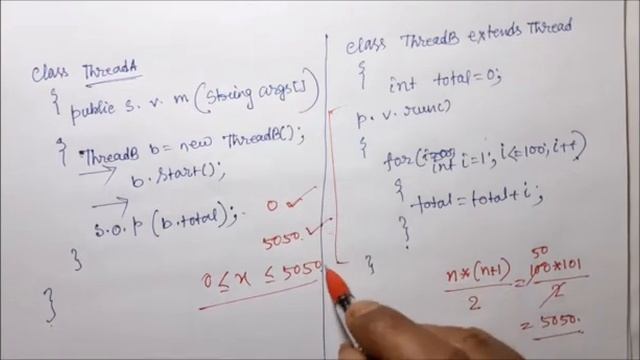 class ThreadA
{ public s. v. m (String args[])
{ ThreadB b = new ThreadB();
→ b.start();
→
s.o.p (b.total);
}
}
0 ✓
5050. ✓
0 ≤ x ≤ 5050
class ThreadB extends Thread
{
int total=0;
p. v. run()
{
for( int i=1; i<=100; i++)
{
total = total + i;
}
}
n*(n+1) / 2 = 50 100*101 / 2
= 5050.